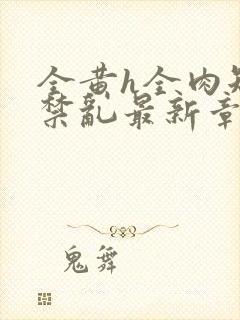 全黄h全肉短
禁乱最新章
鬼舞